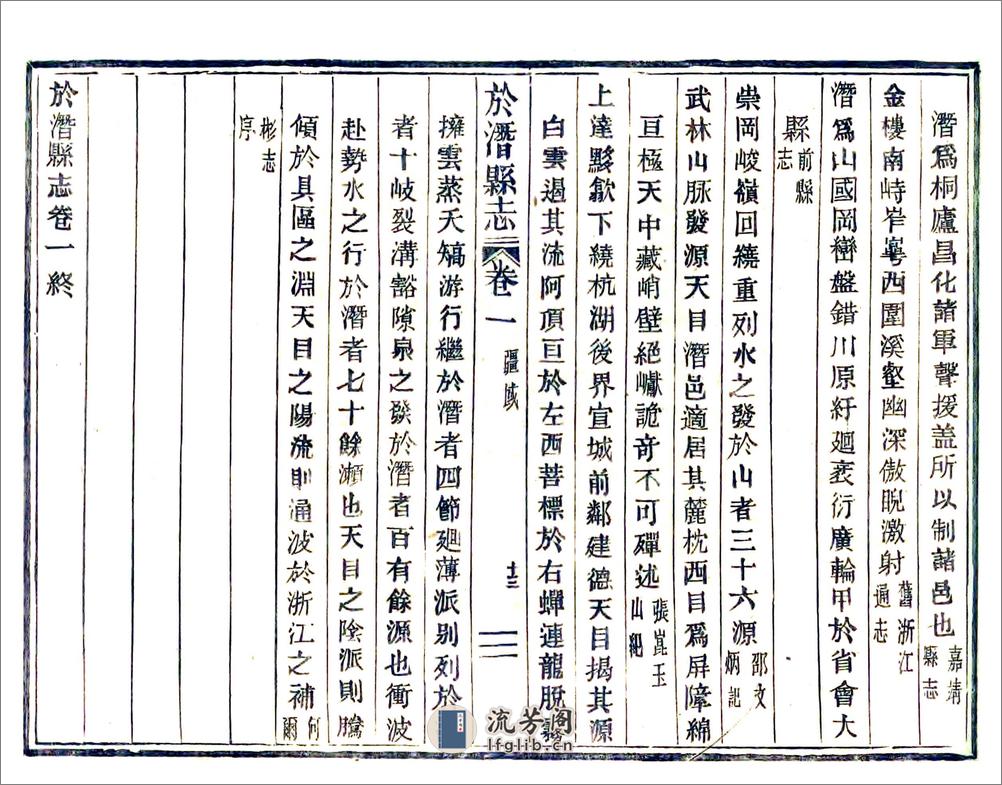 潛爲桐廬昌化諸軍聲援盖所以制諸邑也嘉靖縣志
金樓南峙岝崿西圍溪壑幽深傲睨激射舊浙江通志
潛爲山國岡巒盤錯川原紆廻袤衍廣輪甲於省會大
縣前縣志
崇岡峻嶺回繞重列水之發於山者三十六源邵文炳記
武林山脉發源天目潛邑適居其麓枕西目爲屏障綿
亘極天中藏峭壁絕巘詭奇不可殫述張崑玉山紀
上達黟歙下繞杭湖後界宣城前鄰建德天目揭其源
白雲遏其流阿頂亘於左西菩標於右蟬連龍脫霧
於潛縣志
卷一
疆域
十三
擁雲蒸夭矯游行繼於潛者四節廻薄派别列於
者十岐裂溝豁隙泉之發於潛者百有餘源也衝波
赴勢水之行於潛者七十餘瀨也天目之陰派則騰
傾於具區之淵天目之陽流則通波於浙江之補何爾
彬志序
於潛縣志卷一終
流芳阁
lfglib.cn